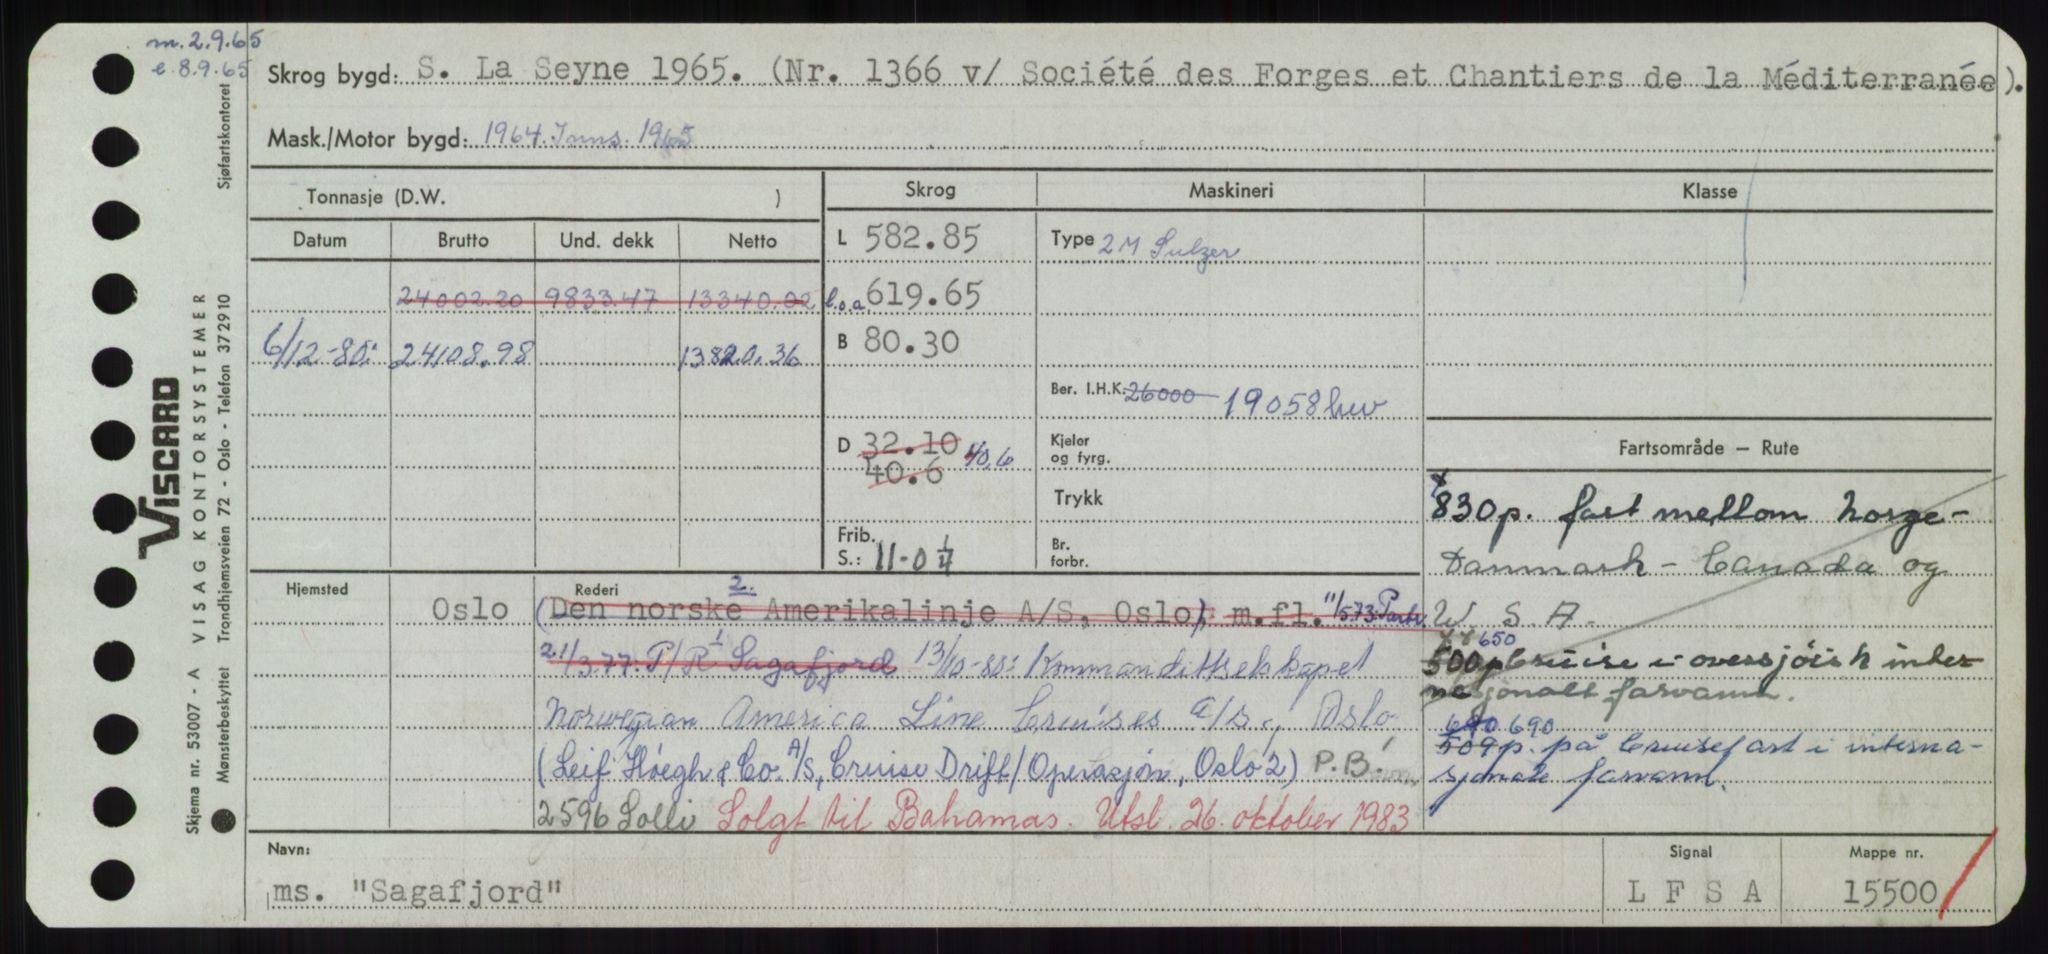 m. 2.9.65
e 8.9.65
Skrog bygd: S. La Seyne 1965. (Nr. 1366 v/ Société des Forges et Chantiers de la Méditerranée).
Mask./Motor bygd: 1964. Inns. 1965
Tonnasje (D.W. )
Skrog
Maskineri
Klasse
Datum Brutto Und. dekk Netto
L 582.85
Type 2 M Sulzer
24002.20 9833.47 13340.02
l.o.a 619.65
6/12-80: 24108.98 13820.36
B 80.30
Ber. I.H.K. 26000 19058 hw
D 32.10 40,6
40.6
Kjeler
og fyrg.
Trykk
Frib.
S.: 11-0 1/4
Br.
forbr.
Fartsområde — Rute
830p. fart mellom Norge-
Danmark - Canada og
U. S. A.
650
500p Cruise i oversjøisk inter
nasjonalt farvann.
690
509p. på Cruisefart i interna-
sjonale farvann.
Hjemsted
Rederi
2.
Oslo (Den norske Amerikalinje A/S, Oslo), m.fl. 11/573: Partr.
21/3.77. P/R Sagafjord 13/10-80: Kommandittselskapet
Norwegian America Line Cruises A/S., Oslo
(Leif Höegh & Co. A/S, Cruise Drift/Operasjon, Oslo 2) P.B.
2596 Solli Solgt til Bahamas. Utsl. 26. oktober 1983
Navn:
ms. "Sagafjord"
Signal
L F S A
Mappe nr.
15500
VISCARD
Skjema nr. 53007 - A VISAG KONTORSYSTEMER
Mønsterbeskyttet Trondhjemsveien 72 - Oslo - Telefon 37 29 10 Sjøfartskontoret